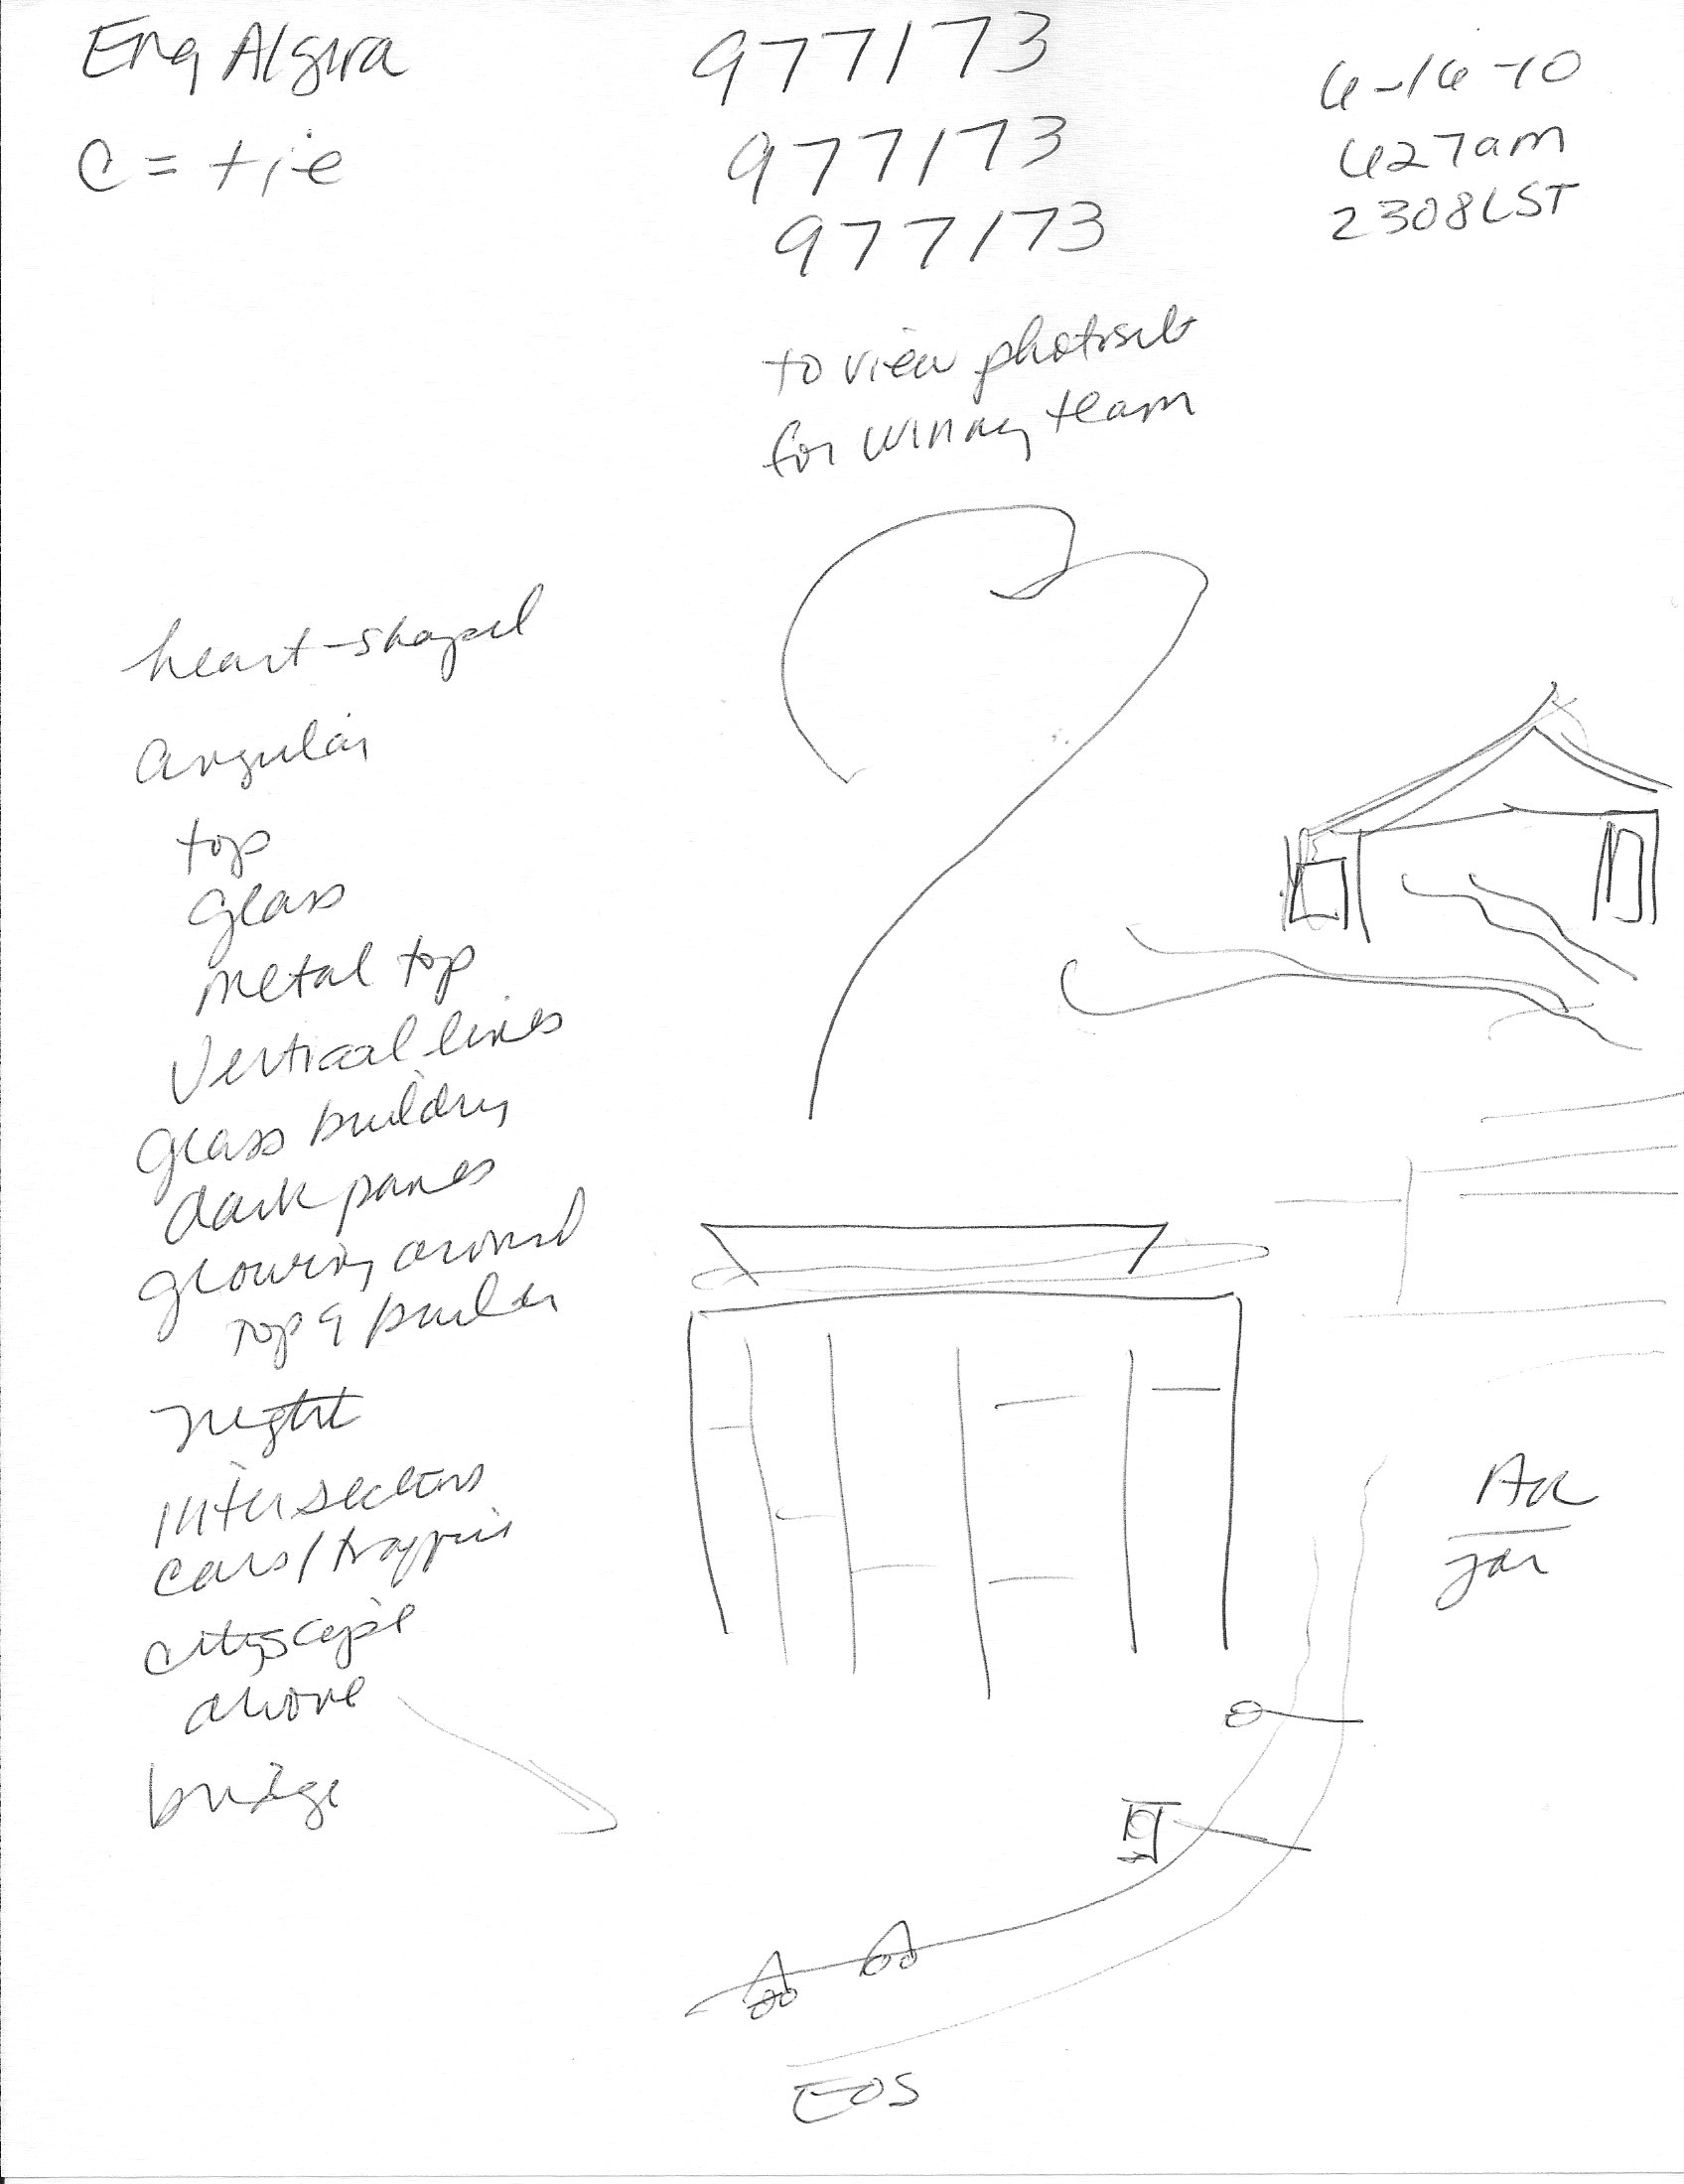 Eng Algeria
C = tie
977173
977173
977173
6-16-10
427am
2308LST
to view photosite
for winning team
heart-shaped
angular
top
glass
metal top
vertical lines
glass building
dark panes
around
top
night
intersections
cars/traffic
cityscape
above
bridge
jar
EOS